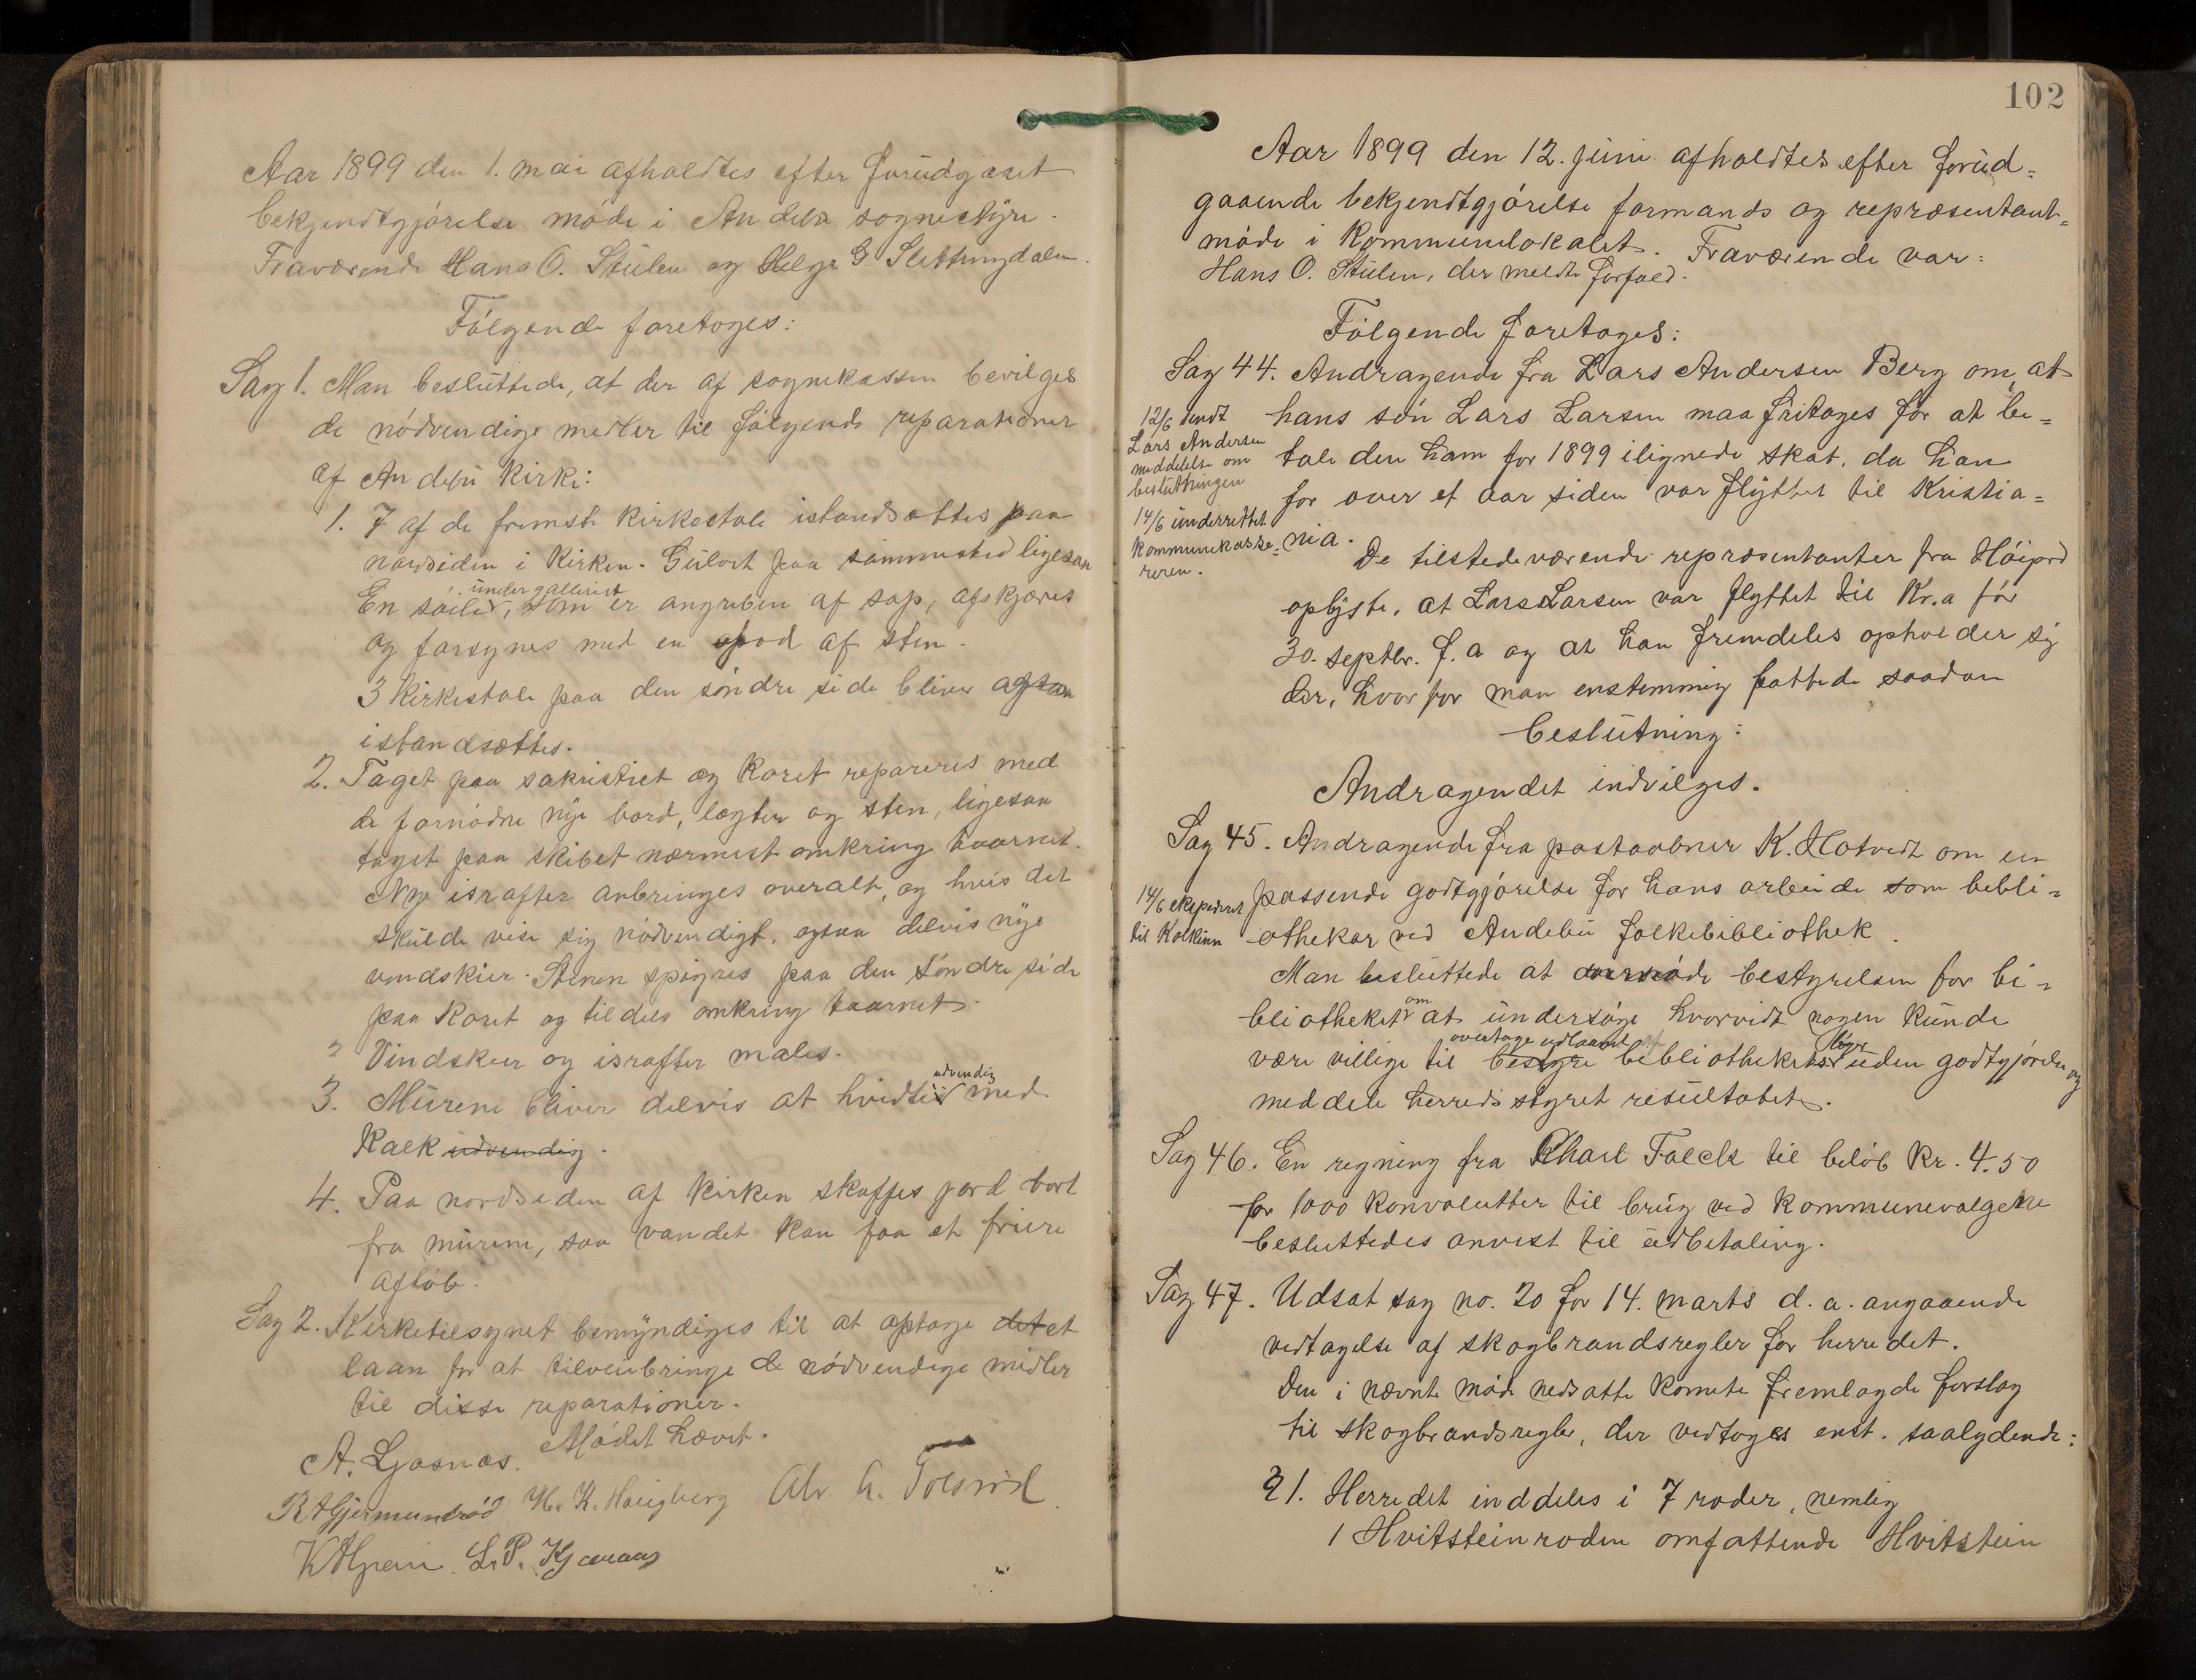 Aar 1899 den 1. mai afholdtes efter forudgaaet
bekjendtgjørelse møde i Andebu sognestyre.
Fraværende Hans O. Stulen og Helge G. Slettingdalen.
Følgende foretoges:
Sag 1. Man besluttede, at der af sognekassen bevilges
de nødvendige midler til følgende reparationer
af Andebu kirke:
1. 7 af de fremste kirkestole istandsættes paa
nordsiden i kirken. Gulvet paa sammested ligesaa
under galleriet
En søile, som er angreben af sop, afskjæres
og forsynes med en fod af sten.
3 kirkestole paa den søndre side bliver ogsaa
istandsættes.
2. Taget paa sakristiet og koret repareres med
de fornødne nye bord, lægter og sten, ligesaa
taget paa skibet nærmest omkring taarnet.
Nye israfter anbringes overalt, og hvis det
skulde vise sig nødvendigt, ogsaa delvis nye
vindskier. Stenen spigres paa den søndre side
paa koret og tildels omkring taarnet.
Vindskier og israfter males.
udvendig
3. Murene bliver delvis at hvidte med
kalk udvendig.
4. Paa nordsiden af kirken skaffes jord bort
fra murene, saa vandet kan faa et friere
afløb.
Sag 2. Kirketilsynet bemyndiges til at optage det et
laan for at tilveiebringe de nødvendige midler
til disse reparationer.
Mødet hævet.
A. Gjasnæs.
R A Gjermundrød H. K. Haugberg Alv. A. Tolsrød
L. P. Kjæraas
102
Aar 1899 den 12. juni afholdtes efter forud-
gaaende bekjendtgjørelse formands og repræsentant-
møde i kommunelokalet. Fraværende var:
Hans O. Stulen, der meldte forfald.
Følgende foretoges:
Sag 44. Andragende fra Lars Andersen Berg om, at
hans søn Lars Larsen maa fritages for at be-
tale den ham for 1899 ilignede skat, da han
for over et aar siden var flyttet til Kristia-
nia.
12/6 sendt
Lars Andersen
meddelelse om
beslutningen
14/6 underrettet
kommunekasse-
reren.
De tilstedeværende repræsentanter fra Høijord
oplyste, at Lars Larsen var flyttet til Kr.a før
30. septbr. f. a og at han fremdeles opholder sig
der, hvorfor man enstemmig fattede saadan
beslutning:
Andragendet indvilges.
Sag 45. Andragende fra postaabner K. Hotvedt om en
passende godtgjørelse for hans arbeide som bibli-
othekar ved Andebu folkebibliothek.
14/6 ekspederet
til Kolkinn
Man besluttede at anmode bestyrelsen for bi-
bliotheket om at undersøge hvorvidt nogen kunde
overtage udlaanet af bøger
være villige til bestyre bibliothekets uden godtgjørelse og
meddele herredsstyret resultatet.
Sag 46. En regning fra Kharl Falck til beløb kr. 4.50
for 1000 konvolutter til brug ved kommunevalgene
besluttedes anvist til udbetaling.
Sag 47. Udsat sag no. 20 for 14. marts d. a. angaaende
vedtagelse af skogbrandsregler for herredet.
Den i nævnte møde nedsatte komite fremlagde forslag
til skogbrandsregler, der vedtoges enst. saalydende:
§ 1. Herredet inddeles i 7 roder, nemlig
1 Hvitsteinroden omfattende Hvitstein